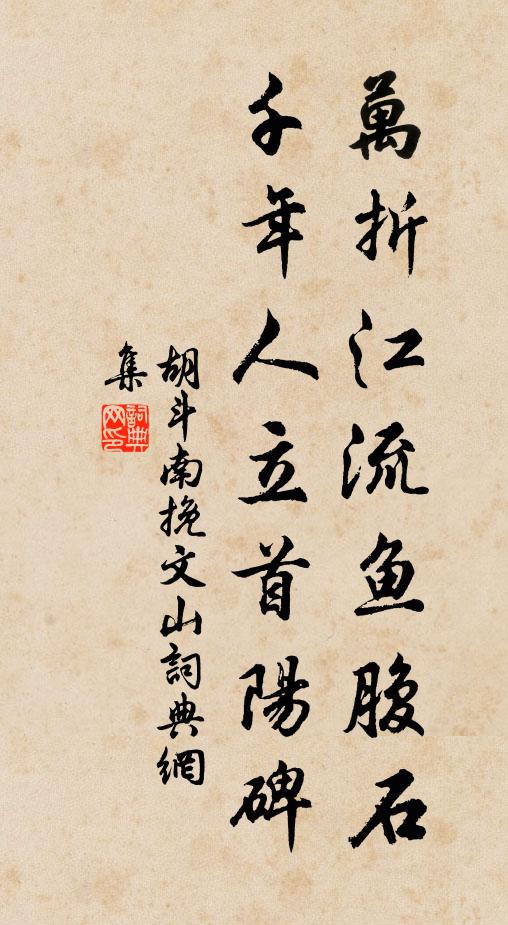 萬折江流鱼腹石
千年人立首陽碑
胡斗南挽文山詞典網
集
詞典
网印